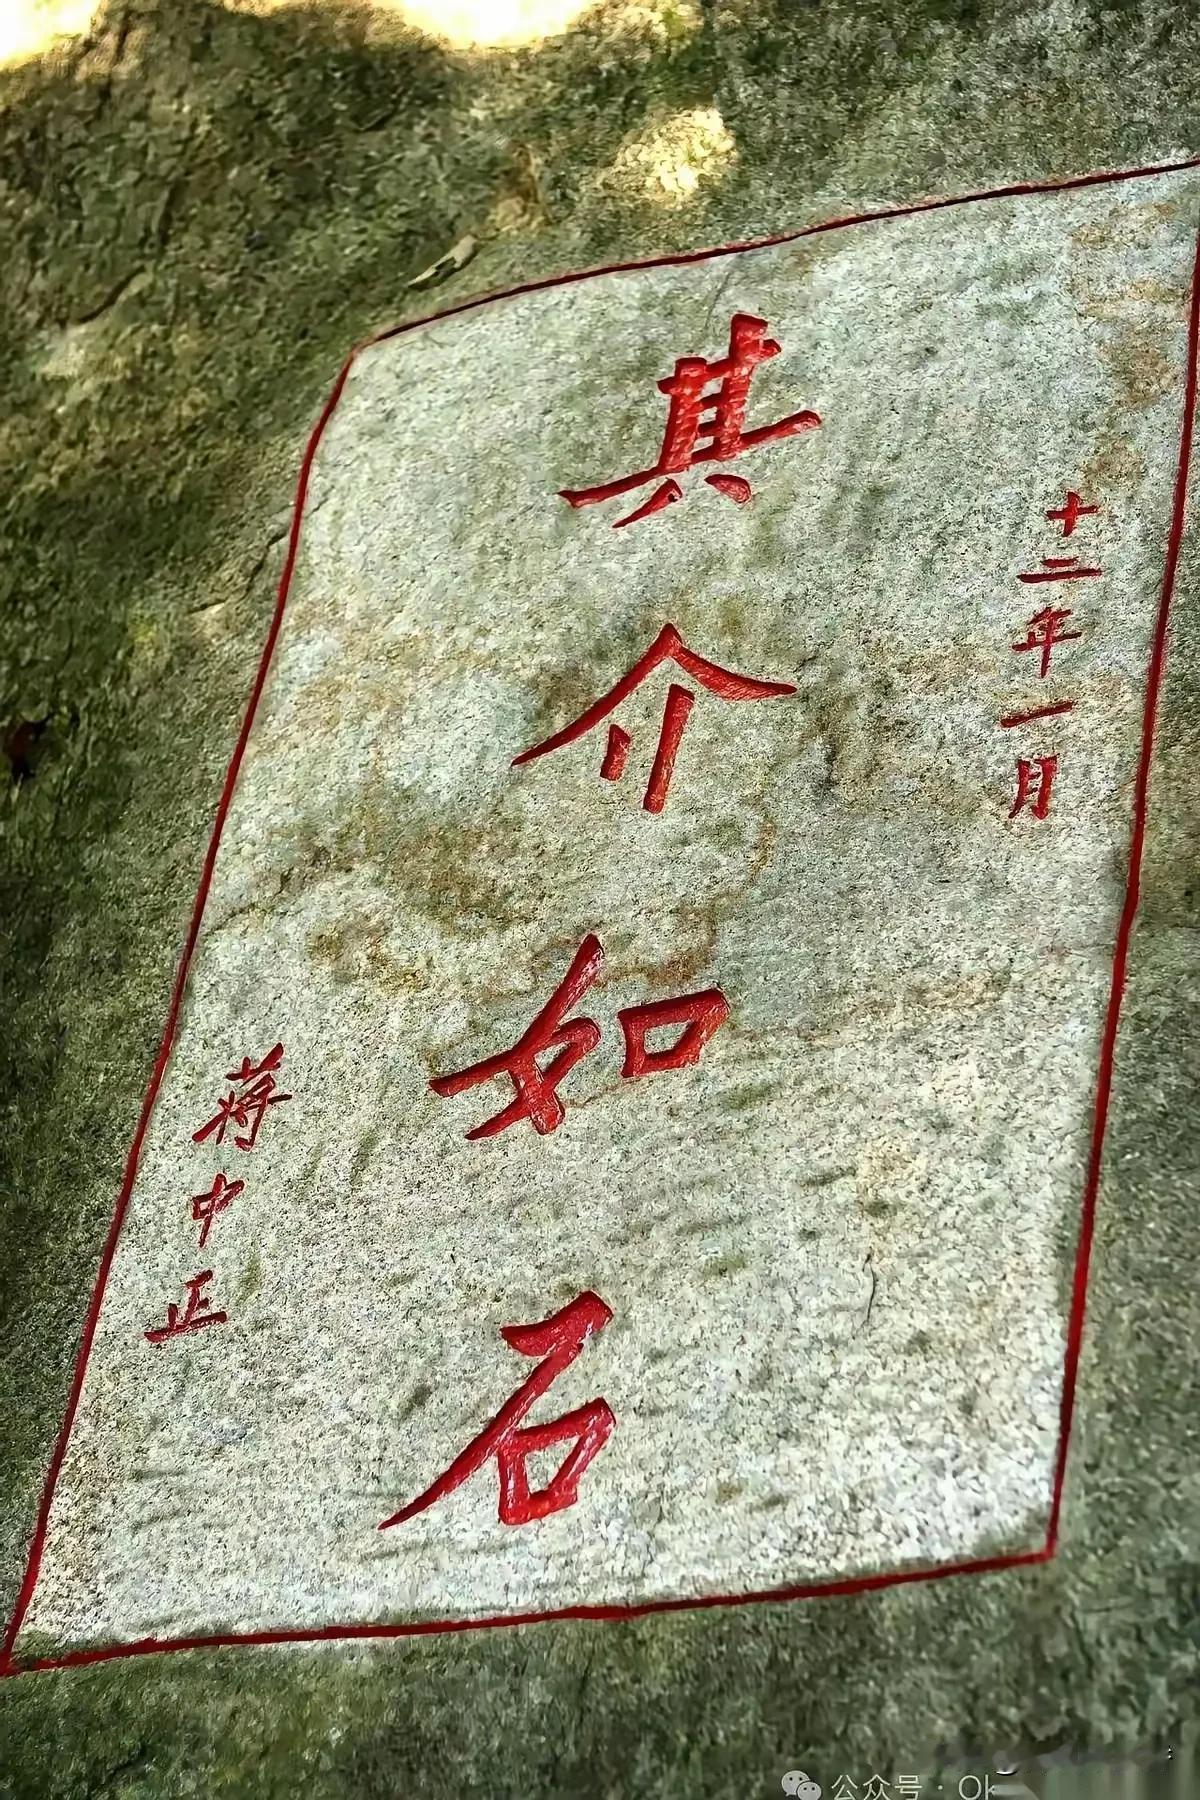 十二年一月
其介如石
蒋中正
公众号·Ok